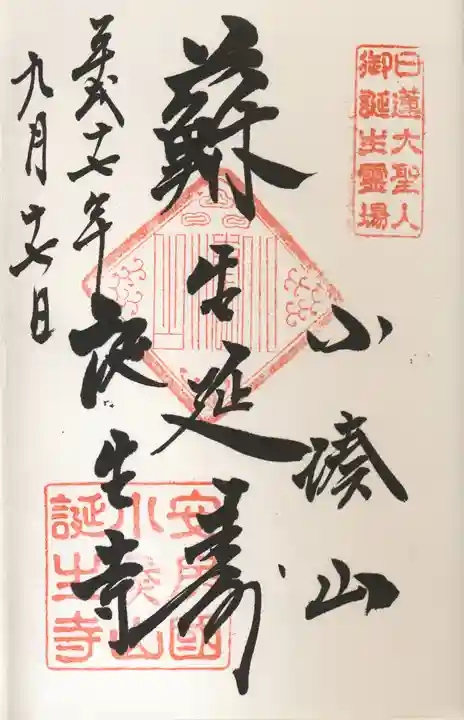 日蓮大聖人
御誕生霊場
小湊山
蘇生延寿
誕生寺
平成十七年
九月十七日
安房國
小湊山
誕生寺